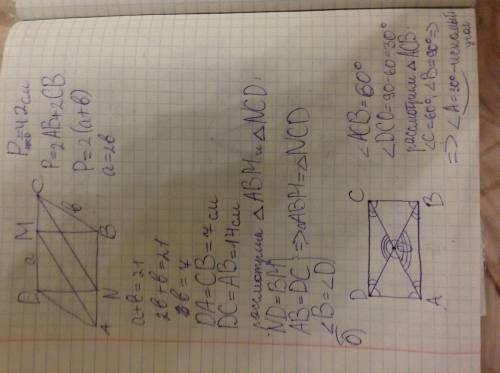 D a M C
A N B
b
Pавс=42 см
P=2AB+2CB
P=2(a+b)
a=2b
a+b=21
2b+b=21
3b=7
DA=CB=7 см
DC=AB=14 см
рассмотрим △ABM и △NCD:
ND=BM
AB=DC
∠B=∠D
=>△ABM=△NCD
б)
D C
A B
∠ACB=60°
∠DCO=90-60=30°
рассмотрим △ACB:
∠C=60°, ∠B=90°=>
=> ∠A=30°-искомый
угол